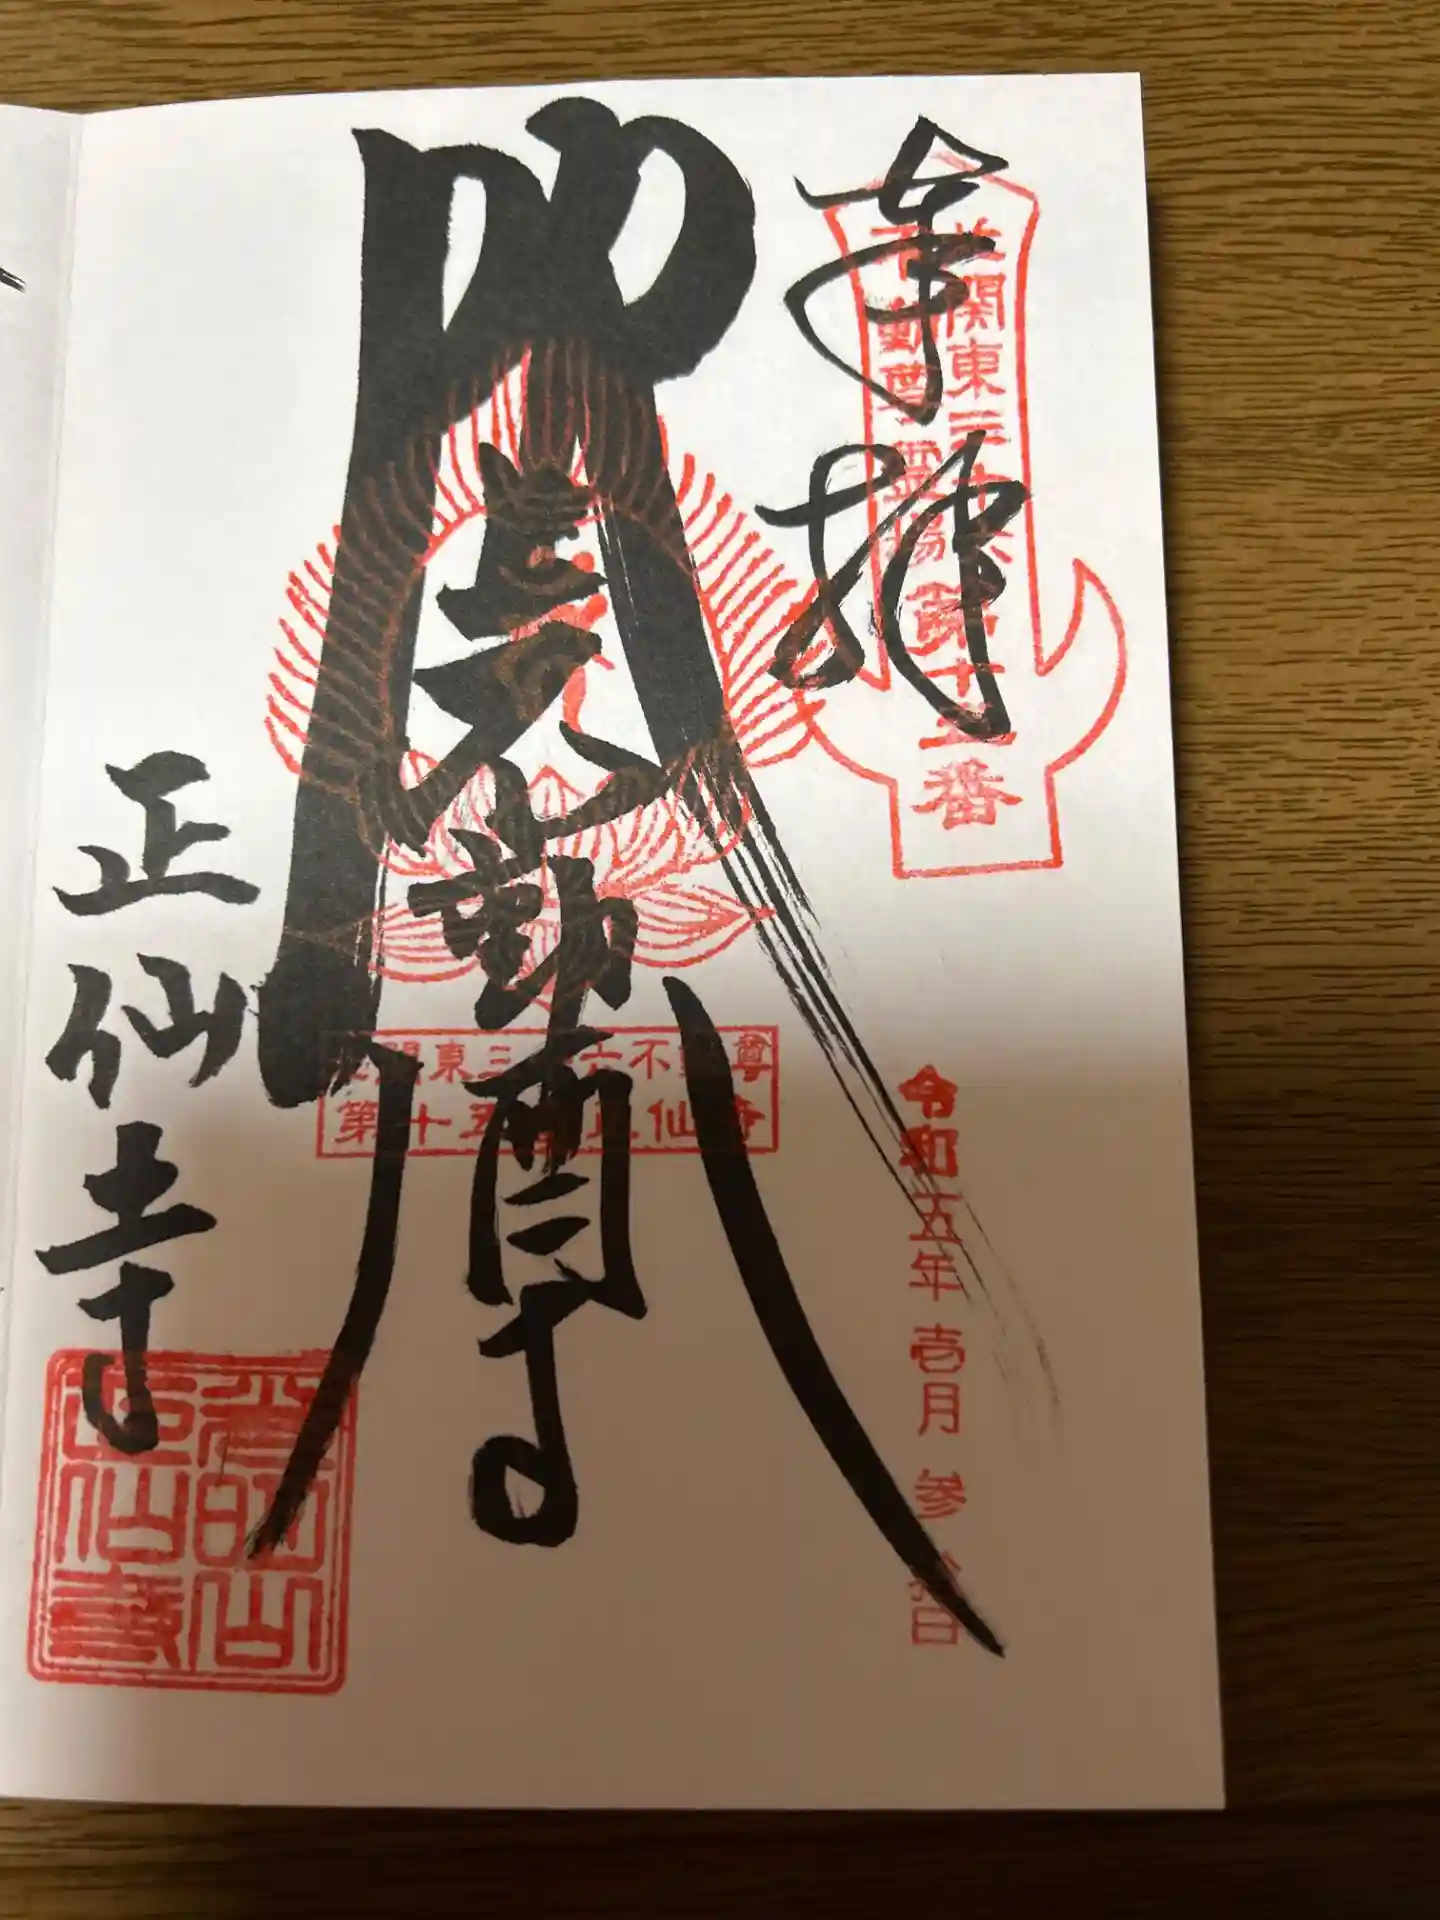 奉拝
北関東三十六
不動尊霊場第十五番
令和五年壱月参拾日
不動尊
北関東三十六不動尊
第十五番正仙寺
正仙寺
正仙寺